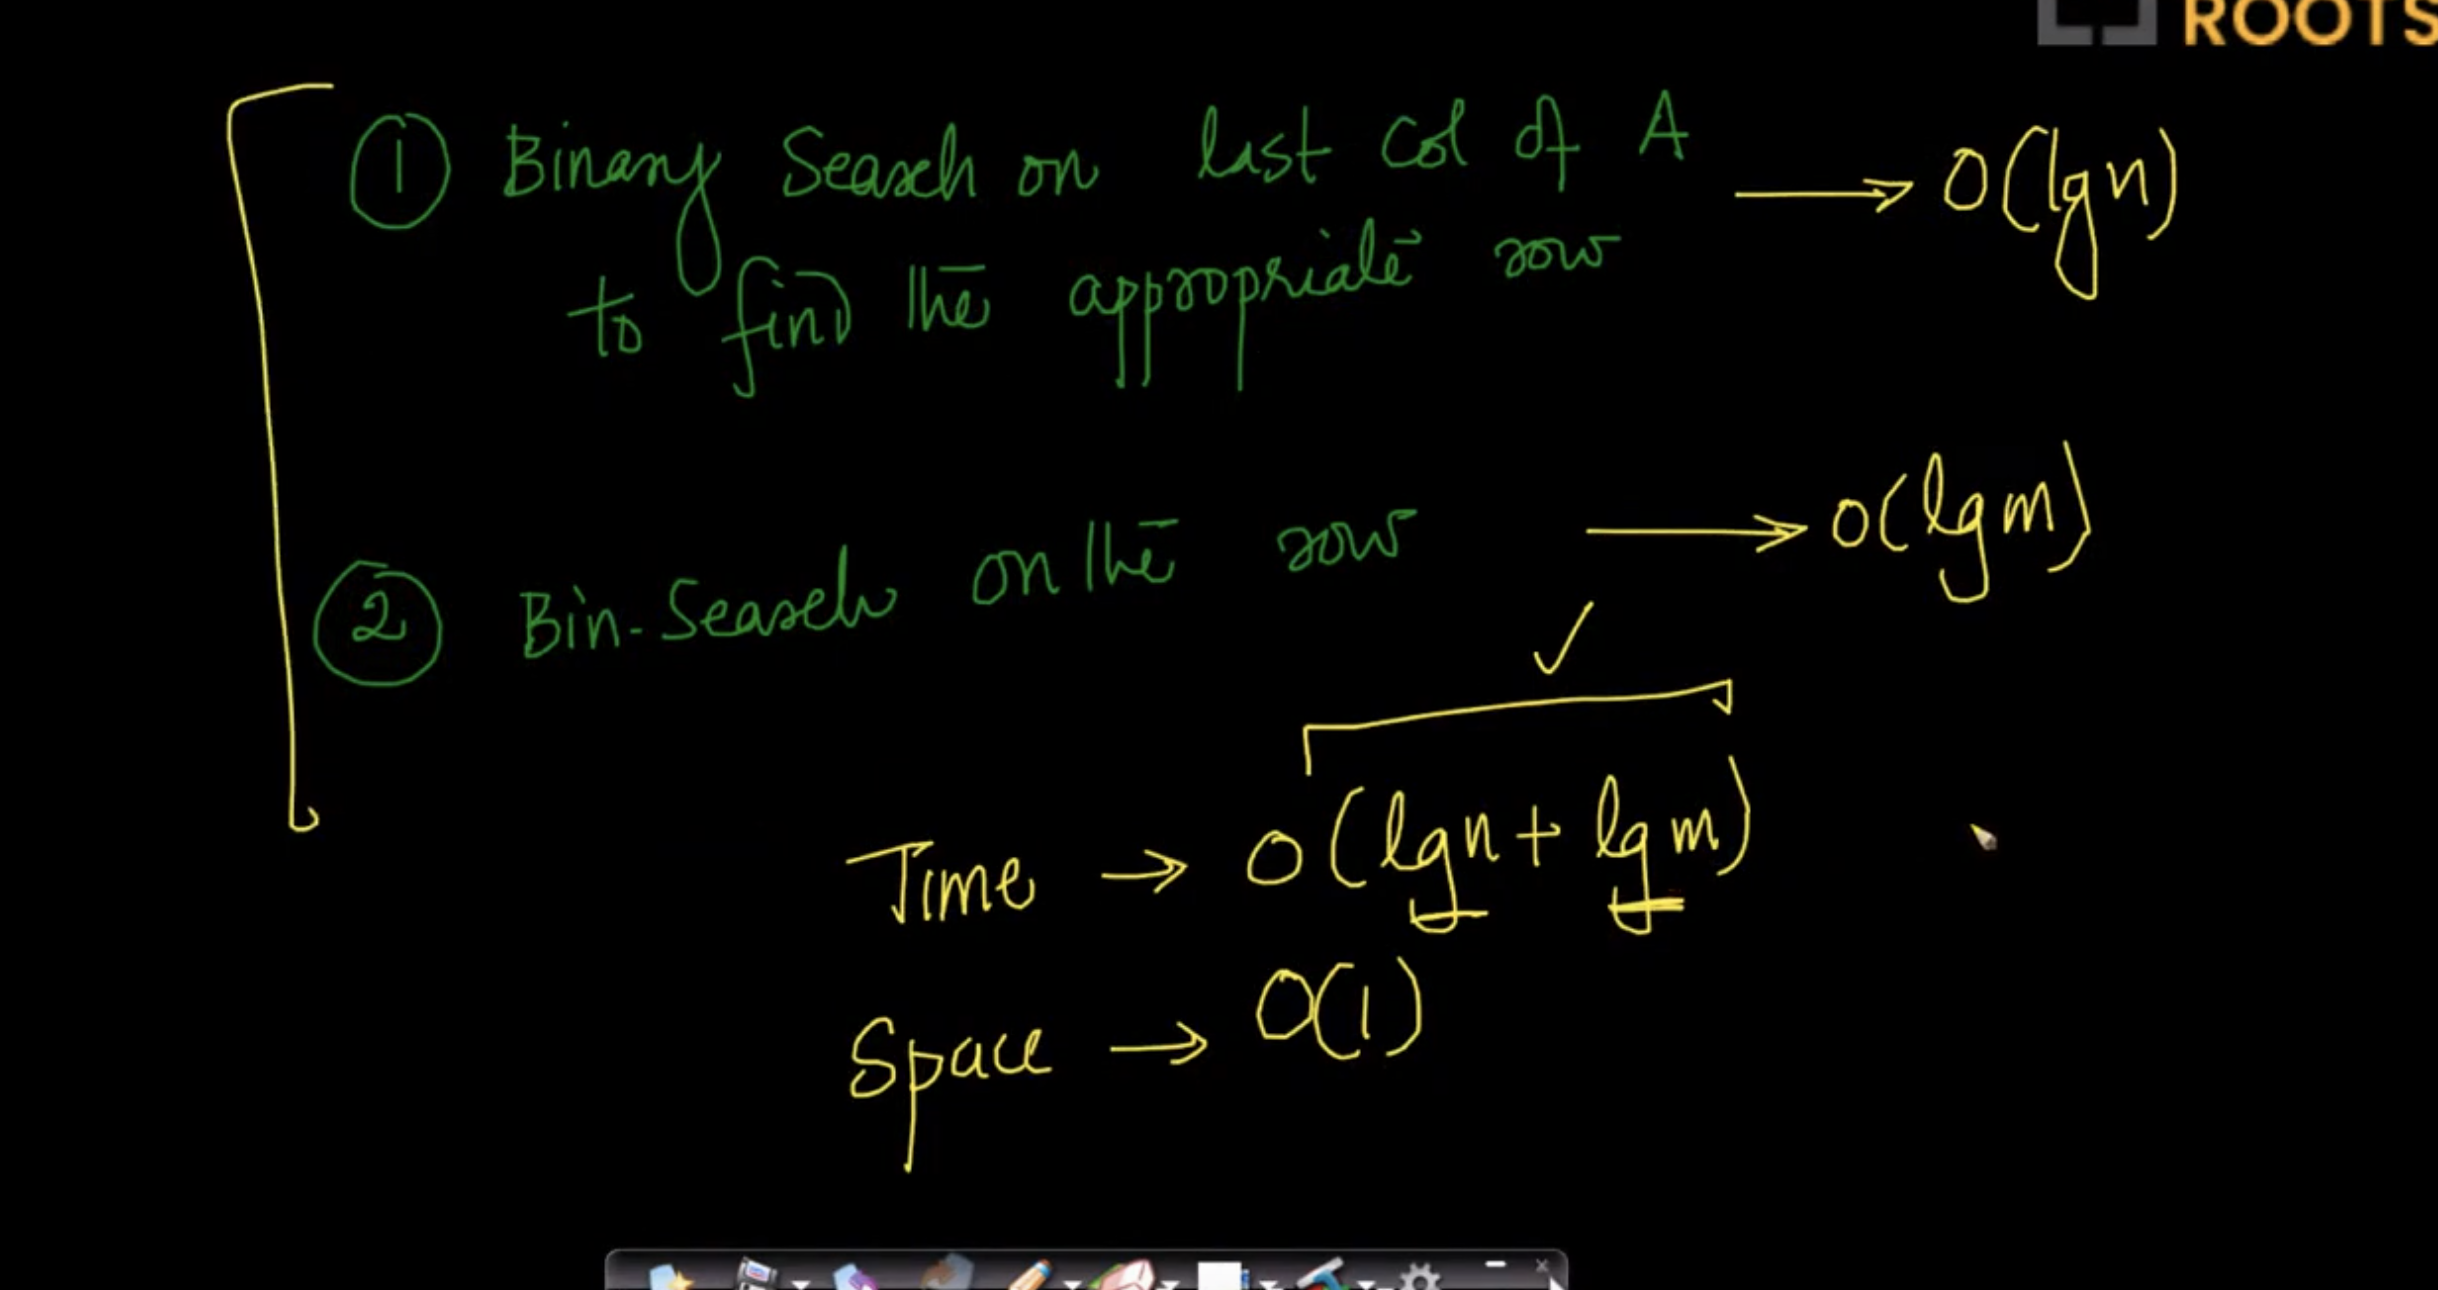 ROOTS
① Binary Search on last col of A → O(lg n)
to find the appropriate row
② Bin-Search on the row → O(lg m)
✓
Time → O(lg n + lg m)
Space → O(1)